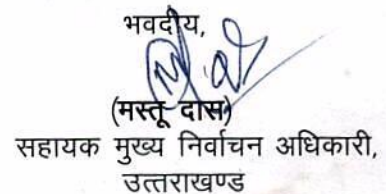 भवदीय,
(मस्तू दास)
सहायक मुख्य निर्वाचन अधिकारी,
उत्तराखण्ड